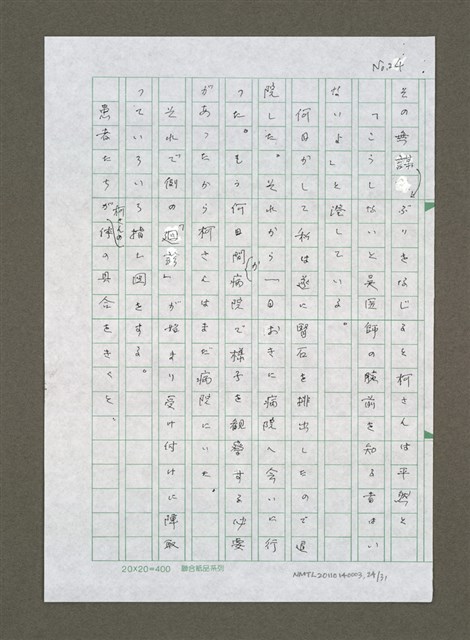 No.24
その無謀ぶりをなじると柯さんは平然と
「こうしないと呉医師の腕前を知る者はい
ないよ」と澄している。
何日かして私は遂に腎石を排出したので退
院した。それから一日おきに病院へ会いに行
った。もう何日間か病院で様子を観察する必要
があったから柯さんはまだ病院にいた。
それで例の「廻診」が始まり受け付けに陣取
っていろいろ指し図をする。
患者たちが柯さんの体の具合をきくと、
20×20=400 聯合紙品系列
NMTL20110140003.24/31